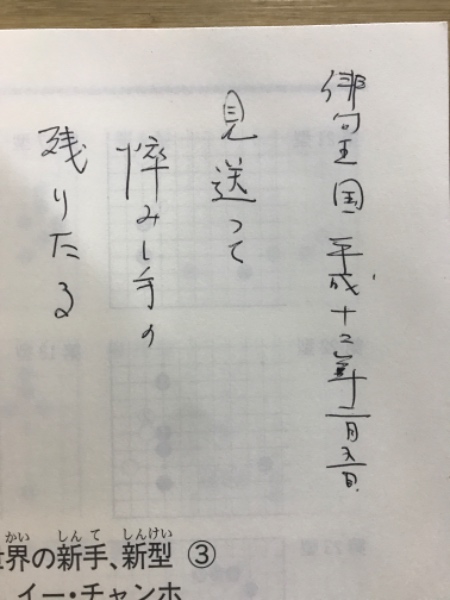 俳句王国 平成十二年
見送って
悴みし手の
残りたる
界の新手、新型 ③
イー・チャンホ